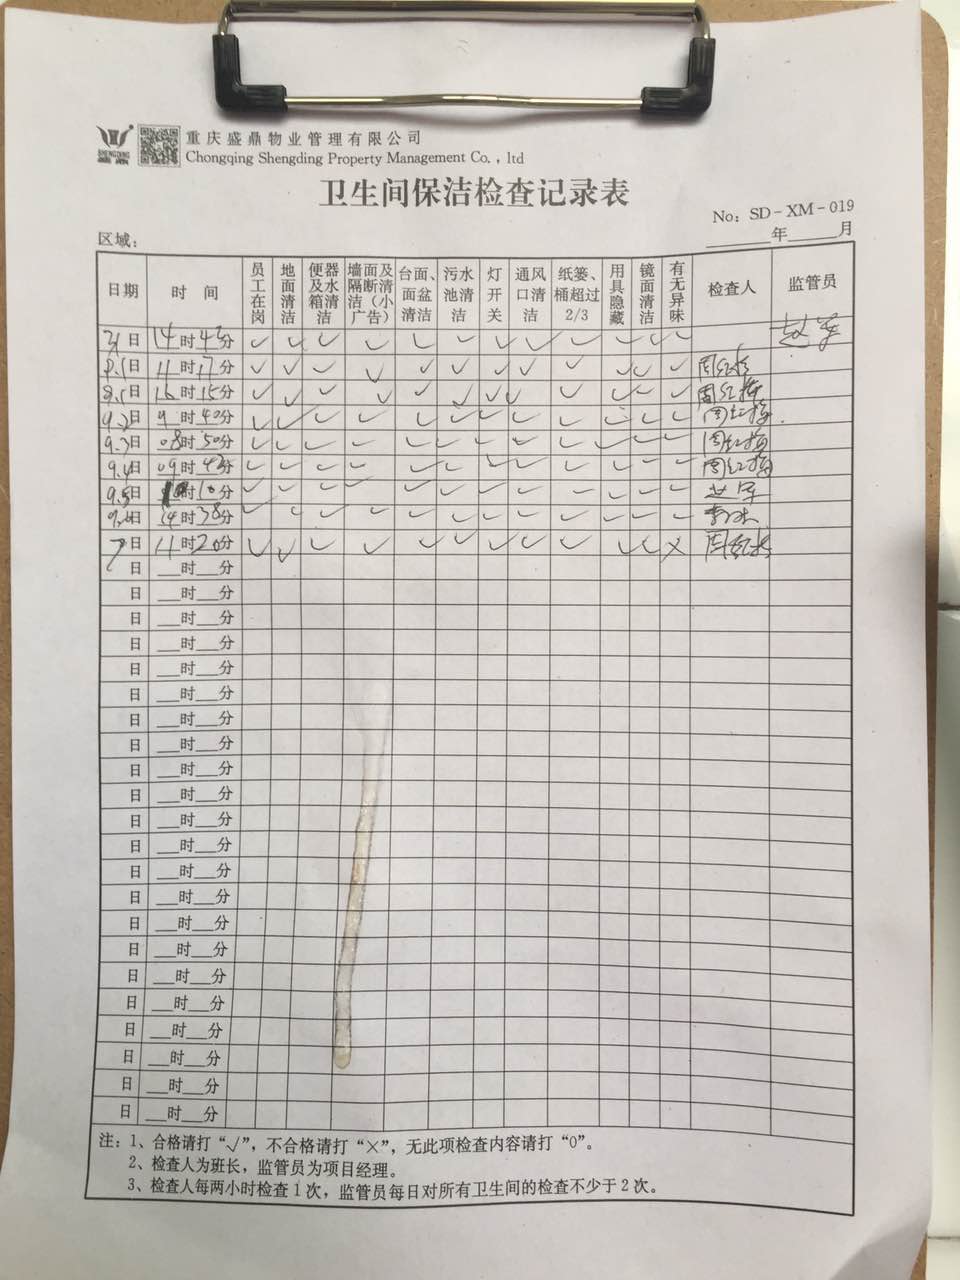 SHENGDING
重庆盛鼎物业管理有限公司
Chongqing Shengding Property Management Co.,ltd
卫生间保洁检查记录表
No: SD-XM-019
区域: ______年______月
日期 时 间 员工在岗 地面清洁 便器及水箱清洁 墙面及隔断清洁(小广告) 台面、面盆清洁 污水池清洁 灯开关 通风口清洁 纸篓、桶超过2/3 用具隐藏 镜面清洁 有无异味 检查人 监管员
31日 14时43分 ✓ ✓ ✓ ✓ ✓ ✓ ✓ ✓ ✓ ✓ ✓ ✓
9.1日 11时17分 ✓ ✓ ✓ ✓ ✓ ✓ ✓ ✓ ✓ ✓ ✓ ✓ 周红梅
9.1日 16时15分 ✓ ✓ ✓ ✓ ✓ ✓ ✓ ✓ ✓ ✓ ✓ ✓ 周红梅
9.2日 9时40分 ✓ ✓ ✓ ✓ ✓ ✓ ✓ ✓ ✓ ✓ ✓ ✓ 周红梅
9.3日 08时50分 ✓ ✓ ✓ ✓ ✓ ✓ ✓ ✓ ✓ ✓ ✓ ✓ 周红梅
9.4日 09时43分 ✓ ✓ ✓ ✓ ✓ ✓ ✓ ✓ ✓ ✓ ✓ ✓ 周红梅
9.5日 时10分 ✓ ✓ ✓ ✓ ✓ ✓ ✓ ✓ ✓ ✓ ✓ ✓
9.6日 14时38分 ✓ ✓ ✓ ✓ ✓ ✓ ✓ ✓ ✓ ✓ ✓ ✓
7日 11时20分 ✓ ✓ ✓ ✓ ✓ ✓ ✓ ✓ ✓ ✓ ✓ × 周红梅
日 __时__分
日 __时__分
日 __时__分
日 __时__分
日 __时__分
日 __时__分
日 __时__分
日 __时__分
日 __时__分
日 __时__分
日 __时__分
日 __时__分
日 __时__分
日 __时__分
日 __时__分
日 __时__分
日 __时__分
日 __时__分
日 __时__分
日 __时__分
日 __时__分
日 __时__分
注: 1、合格请打“√”, 不合格请打“×”, 无此项检查内容请打“0”。
2、检查人为班长, 监管员为项目经理。
3、检查人每两小时检查1次, 监管员每日对所有卫生间的检查不少于2次。